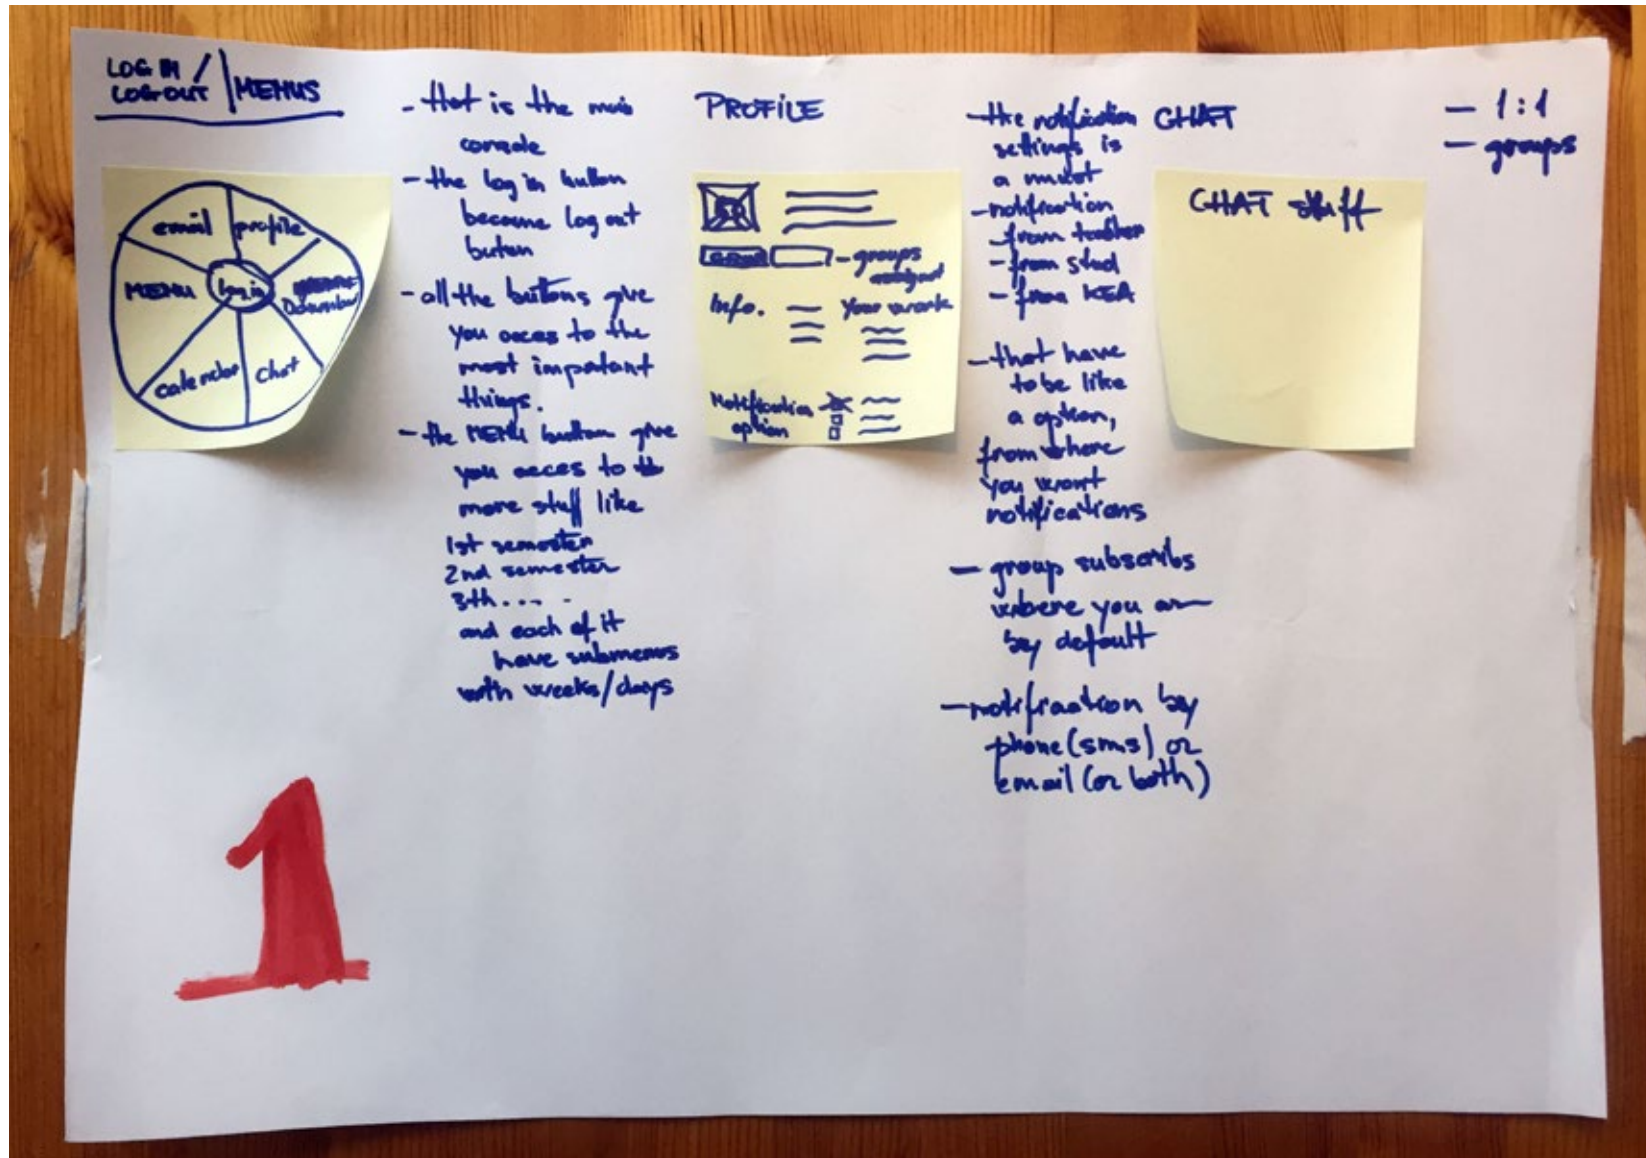 LOG IN /
LOGOUT
MENUS
email
profile
MENU
log in
calendar
chat
- that is the main
console
- the log in button
become log out
buton
- all the buttons give
you acces to the
most impotant
things.
- the MENU button give
you acces to
more stuff like
1st semester
2nd semester
3th....
and each of it
have submenus
with weeks/days
PROFILE
- groups
assigned
Info.
Your work
Notification
option
- the notification
settings is
a must
- notification
- from teacher
- from stud
- from KEA
- that have
to be like
a option,
from where
you want
notifications
- group subscribs
where you are
by default
- notification by
phone (sms) or
email (or both)
CHAT
CHAT stuff
- 1:1
- groups
1